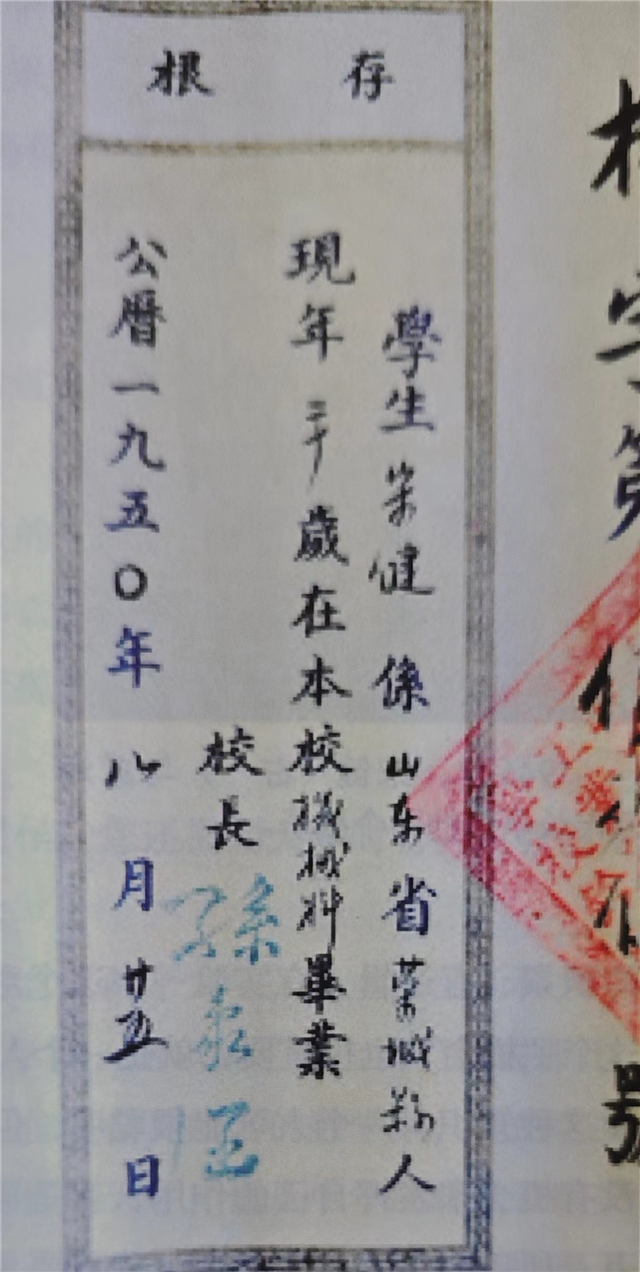 存根
學生宋健係山东省荣城縣人
現年二十歲在本校機械科畢業
校長孫
公曆一九五〇年八月廿五日
字第
號